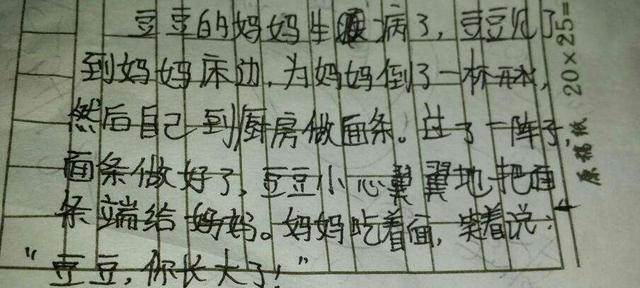 豆豆的妈妈生病了,豆豆见了
到妈妈床边,为妈妈倒了一杯开水,
然后自己到厨房做面条。过了一阵子
面条做好了,豆豆小心翼翼地把面
条端给妈妈。妈妈吃着面,笑着说:
“豆豆,你长大了!”
20×25=
原稿纸